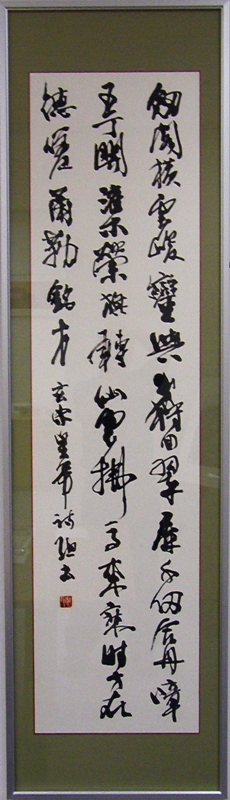 劍閣橫雲峻鑾輿出狩回翠屏千仞合丹嶂
五丁開灌木縈旗轉仙雲拂馬來乘時方在
德嗟爾勒銘才 玄宗皇帝詩 書